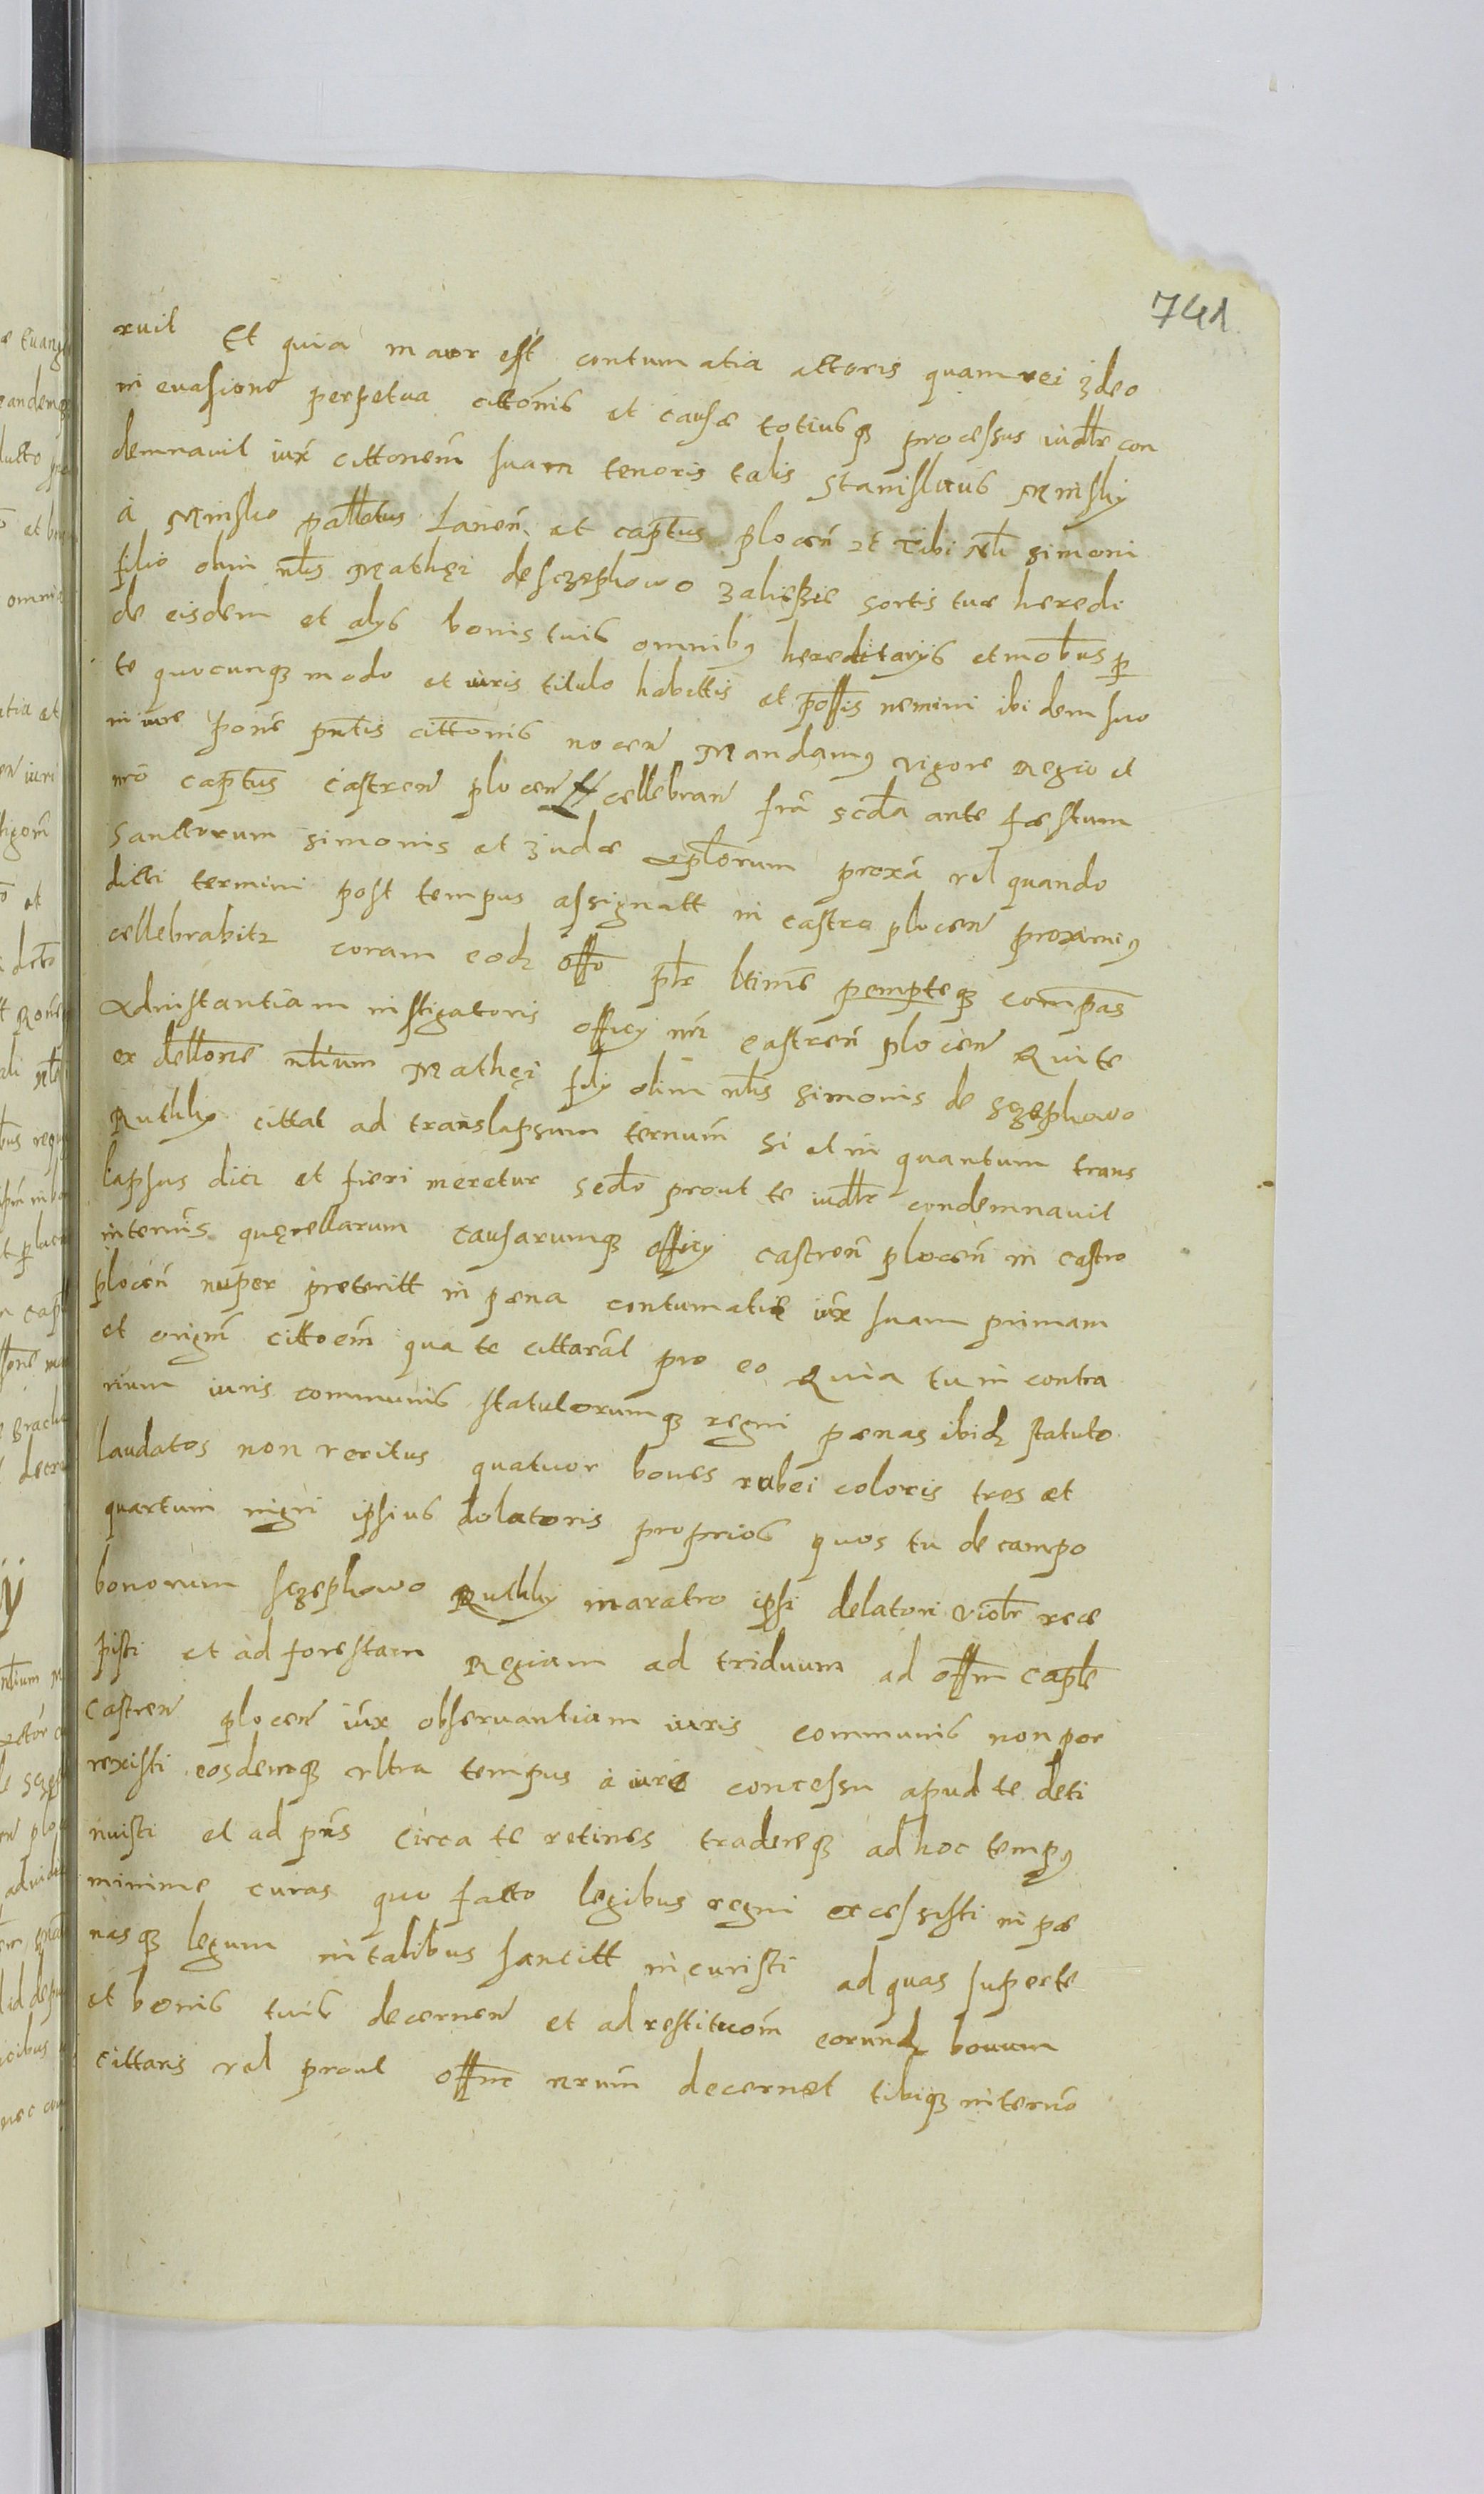 741
ruit Et quia maior est contumatia actoris quam rei Ideo
in evasione perpetua cittonis et causæ totiusq processus iudlr con
demnauit iux cittonem suam tenoris talis Stanislaus Minsky
à Minsko pallatus Lancn et captus plocen et Tibi Nli Simoni
filio olim nlis Mathęi de Sczephowo Zalieszie sortis tuæ heredi
de eisdem et alys bonis tuis omnibus hereditarys et mobus p
te quocunq modo et iuris titulo habittis et possis nemini ibidem suo
in iure pone pntis cittonis nocen Mandamus vigore Regio et
nro captus castren plocen cellebran fra scda ante fæstum
Sanctorum Simonis et Judæ aplorum proxa vel quando
dicti termini post tempus assignatt in castro plocen proximius
cellebrabitr coram eod offo plr ltime pempteq compas
Ad instantiam instigatoris officy nri castren plocen Qui te
ex dellone nlium Mathęi fily olim nlis Simonis de Sczephowo
Ruthky cittat ad translapsum ternum Si et in quantum trans
lapsus dici et fieri meretur Sedo prout te iudlr condemnauit
in ternis quęrellarum causarumq officy castren plocen in castro
plocen nuper preteritt in pæna contumatiæ iux suam primam
et origin cittoem qua te cittarat pro eo Quia tu in contra
rium iuris communis statutorumq regni pænas ibid statuto
laudatos non veritus quatuor boues rubei coloris tres et
quartum nigri ipsius dolatoris proprios quos tu de campo
bonorum Sczephowo Ruthky in aratro ipsi delatori violr rece
pisti et ad forestam Regiam ad triduum ad offm caple
castren plocen iux obseruantiam iuris communis non por
rexisti eosdemq vltra tempus à iure concessu apud te deti
nuisti et ad pns circa te retines tradereq ad hoc tempus
minime curas quo facto legibus regni excessisti in pæ
nasq legum in talibus sancitt incuristi ad quas super te
et bonis tuis decernen et ad restituom eorund bouum
cittaris vel prout offm nrum decernet tibiq in terno